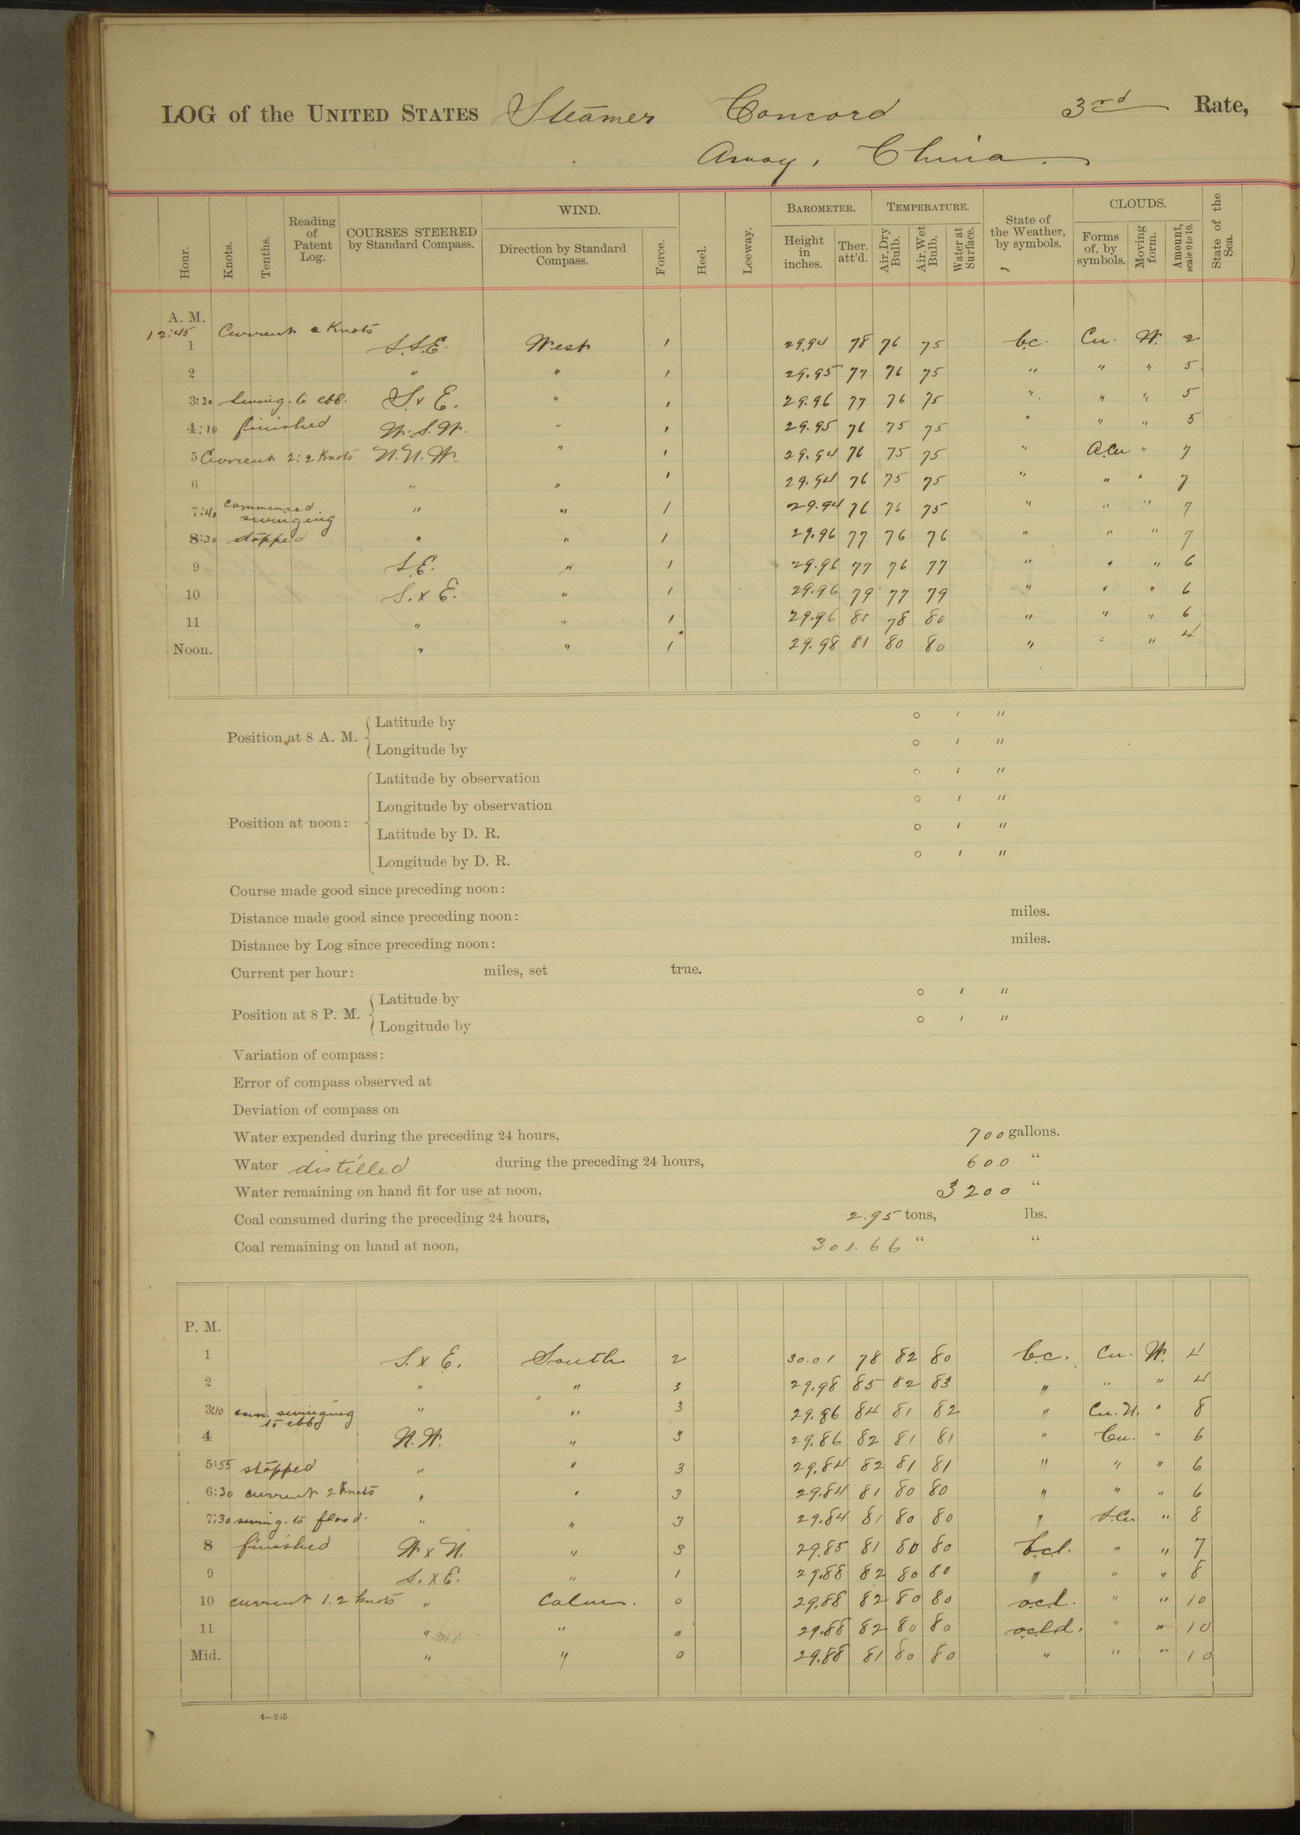 LOG of the UNITED STATES Steamer Concord 3rd Rate,
Amoy, China.
Hour. Knots. Tenths. Reading of Patent Log. COURSES STEERED by Standard Compass. WIND. Direction by Standard Compass. Force. Heel. Leeway. BAROMETER. Height in inches. Ther. att'd. TEMPERATURE. Air, Dry Bulb. Air, Wet Bulb. Water at Surface. State of the Weather, by symbols. CLOUDS. Forms of, by symbols. Moving form. Amount, scale 0 to 10. State of the Sea.
A. M.
12:45 Current 2 Knots
1 S.S.E. West 1 29.94 78 76 75 b.c. Cu. W. 2
2 " " 1 29.95 77 76 75 " " " 5
3:30 Swing. to ebb. S. x E. " 1 29.96 77 76 75 " " " 5
4:10 finished W.S.W. " 1 29.95 76 75 75 " " " 5
5 Current 2:2 Knots N.N.W. " 1 29.94 76 75 75 " A.Cu " 7
6 " " 1 29.94 76 75 75 " " " 7
7:40 commenced swinging " " 1 29.94 76 76 75 " " " 7
8:30 stopped " " 1 29.96 77 76 76 " " " 7
9 S.E. " 1 29.96 77 76 77 " " " 6
10 S. x E. " 1 29.96 79 77 79 " " " 6
11 " " 1 29.96 80 78 80 " " " 6
Noon. " " 1 29.98 81 80 80 " " " 4
Position at 8 A. M. Latitude by ° ' "
Longitude by ° ' "
Position at noon: Latitude by observation ° ' "
Longitude by observation ° ' "
Latitude by D. R. ° ' "
Longitude by D. R. ° ' "
Course made good since preceding noon:
Distance made good since preceding noon: miles.
Distance by Log since preceding noon: miles.
Current per hour: miles, set true.
Position at 8 P. M. Latitude by ° ' "
Longitude by ° ' "
Variation of compass:
Error of compass observed at
Deviation of compass on
Water expended during the preceding 24 hours, 700 gallons.
Water distilled during the preceding 24 hours, 600 "
Water remaining on hand fit for use at noon, 3200 "
Coal consumed during the preceding 24 hours, 2.95 tons, lbs.
Coal remaining on hand at noon, 301.66 " "
P. M.
1 S. x E. South 2 30.01 78 82 80 b.c. Cu. W. 4
2 " " 3 29.98 85 82 83 " " " 4
3:10 com. swinging to ebb " " 3 29.86 84 81 82 " Cu.N. " 8
4 N.W. " 3 29.86 82 81 81 " Cu. " 6
5:55 stopped " " 3 29.84 82 81 81 " " " 6
6:30 current 2 Knots " " 3 29.84 81 80 80 " " " 6
7:30 swing. to flood. " " 3 29.84 81 80 80 " S.Cu " 8
8 finished W x N. " 3 29.85 81 80 80 b.c.l. " " 7
9 S. x E. " 1 29.88 82 80 80 " " " 8
10 current 1.2 knots " Calm. 0 29.88 82 80 80 o.c.l. " " 10
11 " " 0 29.88 82 80 80 o.c.l.d. " " 10
Mid. " " 0 29.88 81 80 80 " " " 10